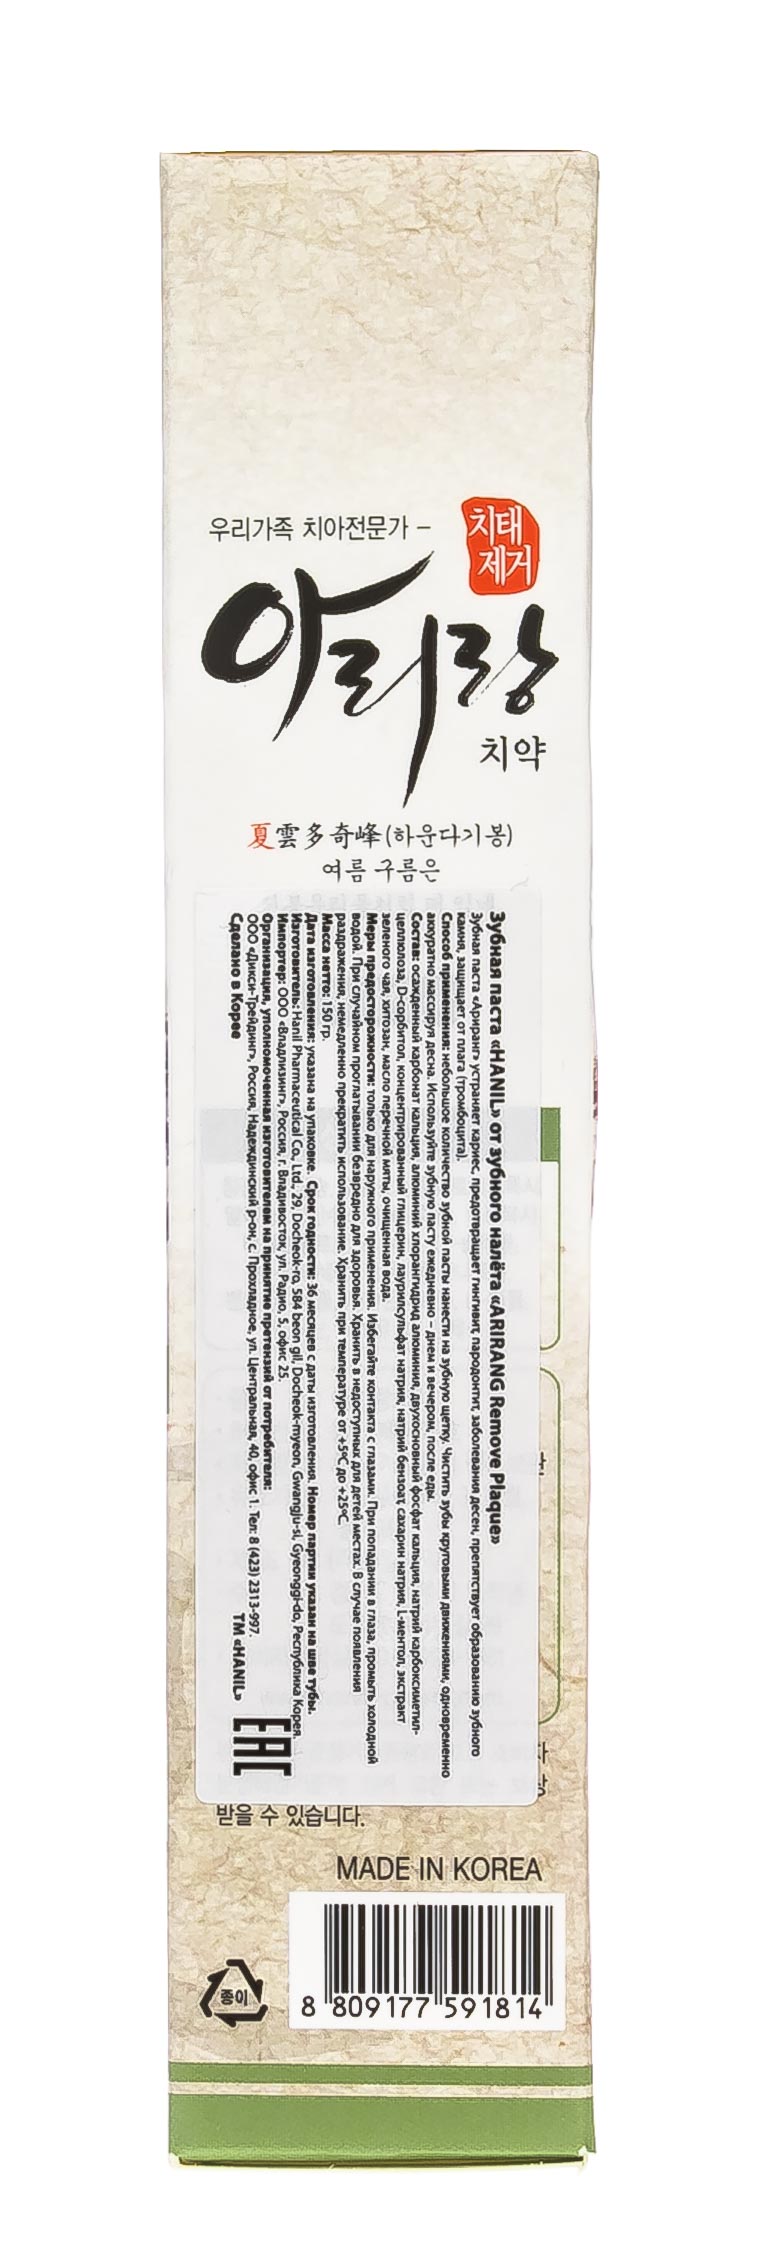 우리가족 치아전문가 –
치태
제거
아리랑
치약
夏雲多奇峰(하운다기봉)
여름 구름은
Зубная паста «HANIL» от зубного налёта «ARIRANG Remove Plaque»
Зубная паста «Ариранг» устраняет кариес, предотвращает гингивит, пародонтит, заболевания десен, препятствует образованию зубного
камня, защищает от плага (тромбоцита).
Способ применения: небольшое количество зубной пасты нанести на зубную щетку. Чистить зубы круговыми движениями, одновременно
аккуратно массируя десна. Используйте зубную пасту ежедневно – днем и вечером, после еды.
Состав: осажденный карбонат кальция, алюминий хлорангидрид алюминия, двухосновный фосфат кальция, натрий карбоксиметил-
целлюлоза, D-сорбитол, концентрированный глицерин, лаурилсульфат натрия, натрий бензоат, сахарин натрия, L-ментол, экстракт
зеленого чая, хитозан, масло перечной мяты, очищенная вода.
Меры предосторожности: только для наружного применения. Избегайте контакта с глазами. При попадании в глаза, промыть холодной
водой. При случайном проглатывании безвредно для здоровья. Хранить в недоступных для детей местах. В случае появления
раздражения, немедленно прекратить использование. Хранить при температуре от +5ºС до +25ºС.
Масса нетто: 150 гр.
Дата изготовления: указана на упаковке. Срок годности: 36 месяцев с даты изготовления. Номер партии указан на шве тубы.
Изготовитель: Hanil Pharmaceutical Co., Ltd., 29, Docheok-ro, 584 beon gil, Docheok-myeon, Gwangju-si, Gyeonggi-do, Республика Корея.
Импортер: ООО «Владлизинг», Россия, г. Владивосток, ул. Радио, 5, офис 25.
Организация, уполномоченная изготовителем на принятие претензий от потребителя:
ООО «Дикси-Трейдинг», Россия, Надеждинский р-он, с. Прохладное, ул. Центральная, 40, офис 1. Тел: 8 (423) 2313-997.
Сделано в Корее
ТМ «HANIL»
EAC
받을 수 있습니다.
MADE IN KOREA
종이
8 809177 591814